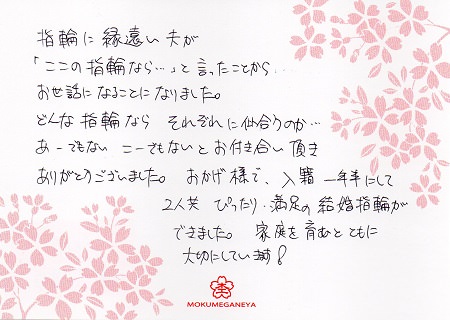 指輪に縁遠い夫が
「ここの指輪なら…」と言ったことから…
お世話になることになりました。
どんな指輪なら それぞれに似合うのか…
あーでもない こーでもないとお付き合い頂き
ありがとうございました。おかげ様で、入籍一年半にして
2人共 ぴったり・満足の結婚指輪が
できました。家庭を育むとともに
大切にしています!
MOKUMEGANEYA